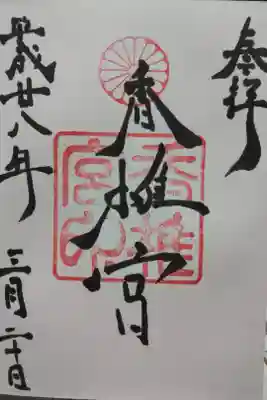 奉拝
香椎宮
香椎宮印
平成廿八年 三月二十日